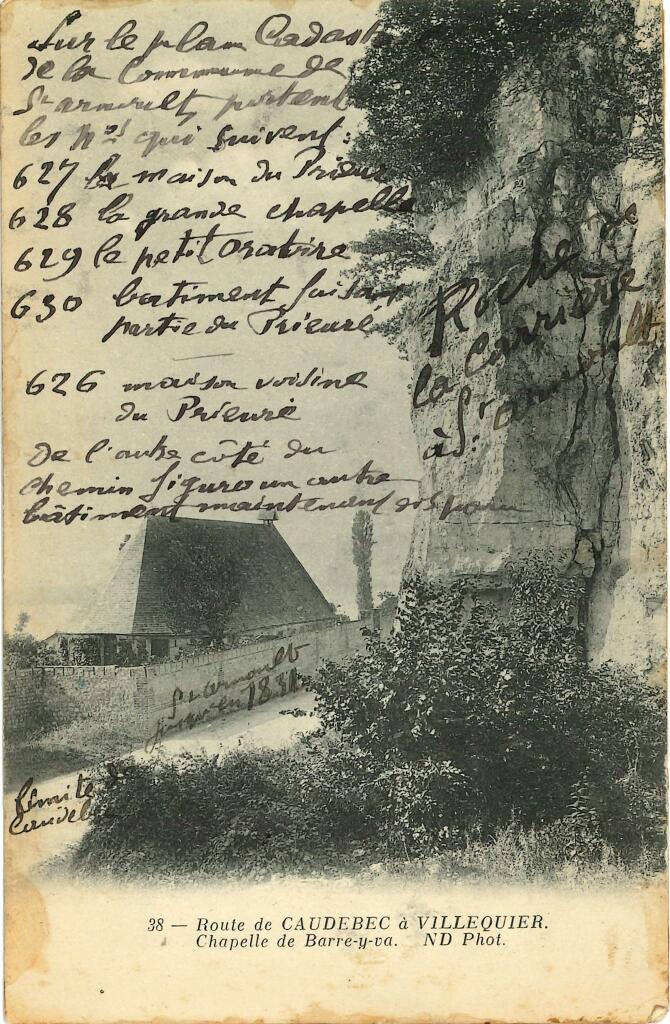 Sur le plan Cadast
de la Commune de
St arnoult, portent
les Nos qui suivent:
627 la maison du Prieur
628 la grande chapelle
629 le petit Oratoire
630 batiment faisant
partie du Prieuré
626 maison voisine
du Prieuré
De l'autre côté du
chemin figure un autre
bâtiment maintenant disparu
Roche de
la Carrière
à St. arnoult
St arnoult
jusqu'en 1831
limite de
Caudebec
38 — Route de CAUDEBEC à VILLEQUIER.
Chapelle de Barre-y-va. ND Phot.